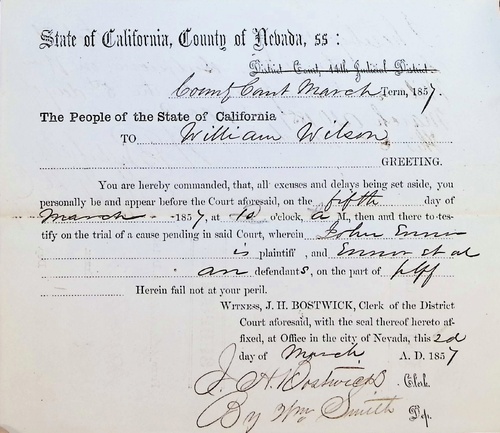 State of California, County of Nevada, ss:
District Court, 14th Judicial District.
County Court March Term, 1857.
The People of the State of California
TO William Wilson
GREETING.
You are hereby commanded, that, all excuses and delays being set aside, you
personally be and appear before the Court aforesaid, on the fifth day of
March 1857, at 10 o'clock, a M., then and there to tes-
tify on the trial of a cause pending in said Court, wherein John
is plaintiff, and et al
are defendants, on the part of plff
Herein fail not at your peril.
WITNESS, J. H. BOSTWICK, Clerk of the District
Court aforesaid, with the seal thereof hereto af-
fixed, at Office in the city of Nevada, this 2d
day of March A. D. 1857
J. H. Bostwick Clerk.
By Wm Smith Dep.